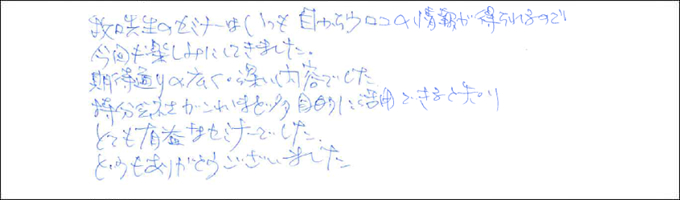 牧口先生のセミナーはいつも目からウロコの情報が得られるので
今回も楽しみにしてきました。
期待通りの広く・深い内容でした
持分会社がこれほど多目的に活用できると知り
とても有益なセミナーでした。
どうもありがとうございました